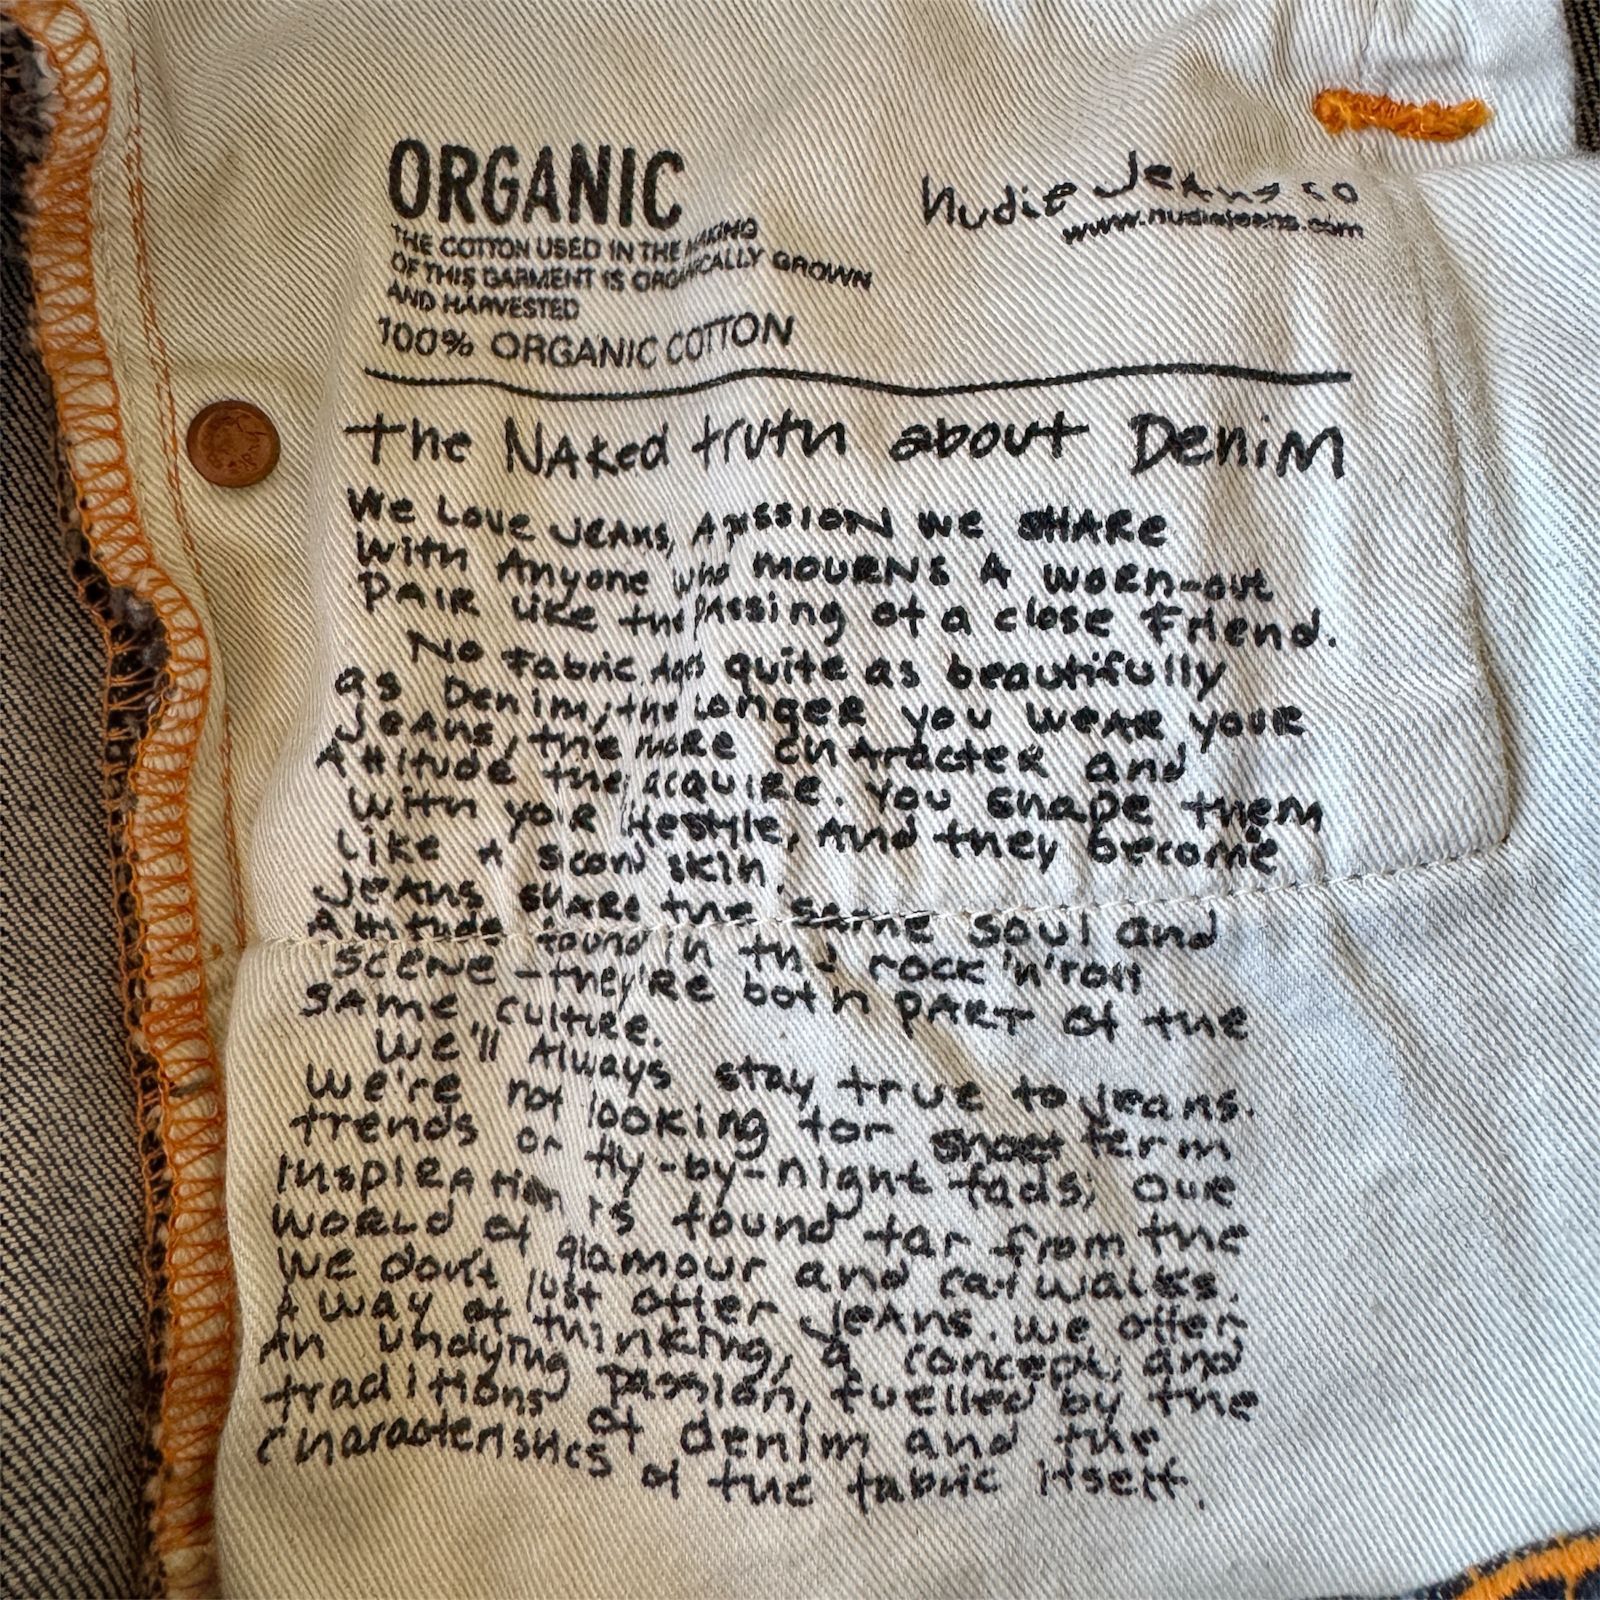 ORGANIC
THE COTTON USED IN THE MAKING
OF THIS GARMENT IS ORGANICALLY GROWN
AND HARVESTED
100% ORGANIC COTTON
Nudie Jeans co
www.nudiejeans.com
The Naked truth about Denim
We Love Jeans, A passion we share
with Anyone who mourns A worn-out
Pair like the Passing of a close friend.
No fabric ages quite as beautifully
as Denim, the longer you wear your
Jeans, the more character and
Attitude the acquire. You shape them
with your lifestyle, and they become
like A scond skin.
Jeans share the same soul and
Attitude found in the rock'n'roll
scene - they're both part of the
same culture.
We'll Always stay true to jeans.
We're not looking for short term
trends or fly-by-night fads; our
inspiration is found far from the
world of glamour and catwalks.
We don't just offer jeans. we offer
A way of thinking, a concept, and
An undying passion, fuelled by the
traditions of denim and the
characteristics of the fabric itself.